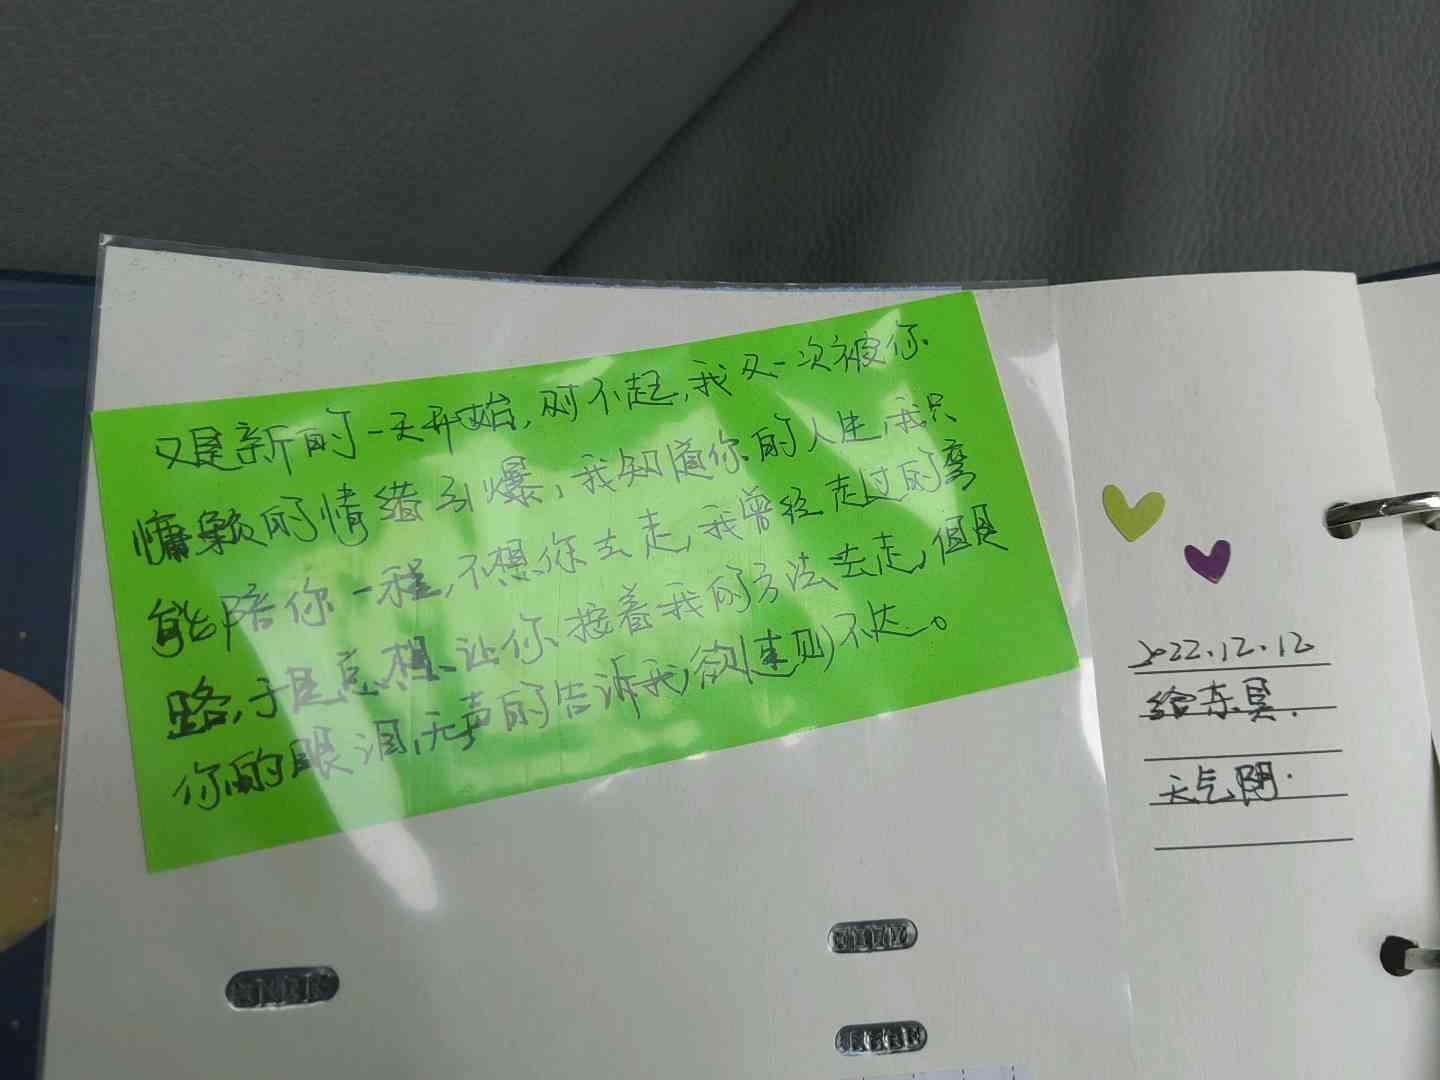 又是新的一天开始,对不起,我又一次被你
慵懒的情绪引爆,我知道你的人生,我只
能陪你一程,不想你去走,我曾经走过的弯
路,于是总想让你按着我的方法去走,但是
你的眼泪,无声的告诉我,欲速则不达。
2022.12.12
给东昊.
天气阴.